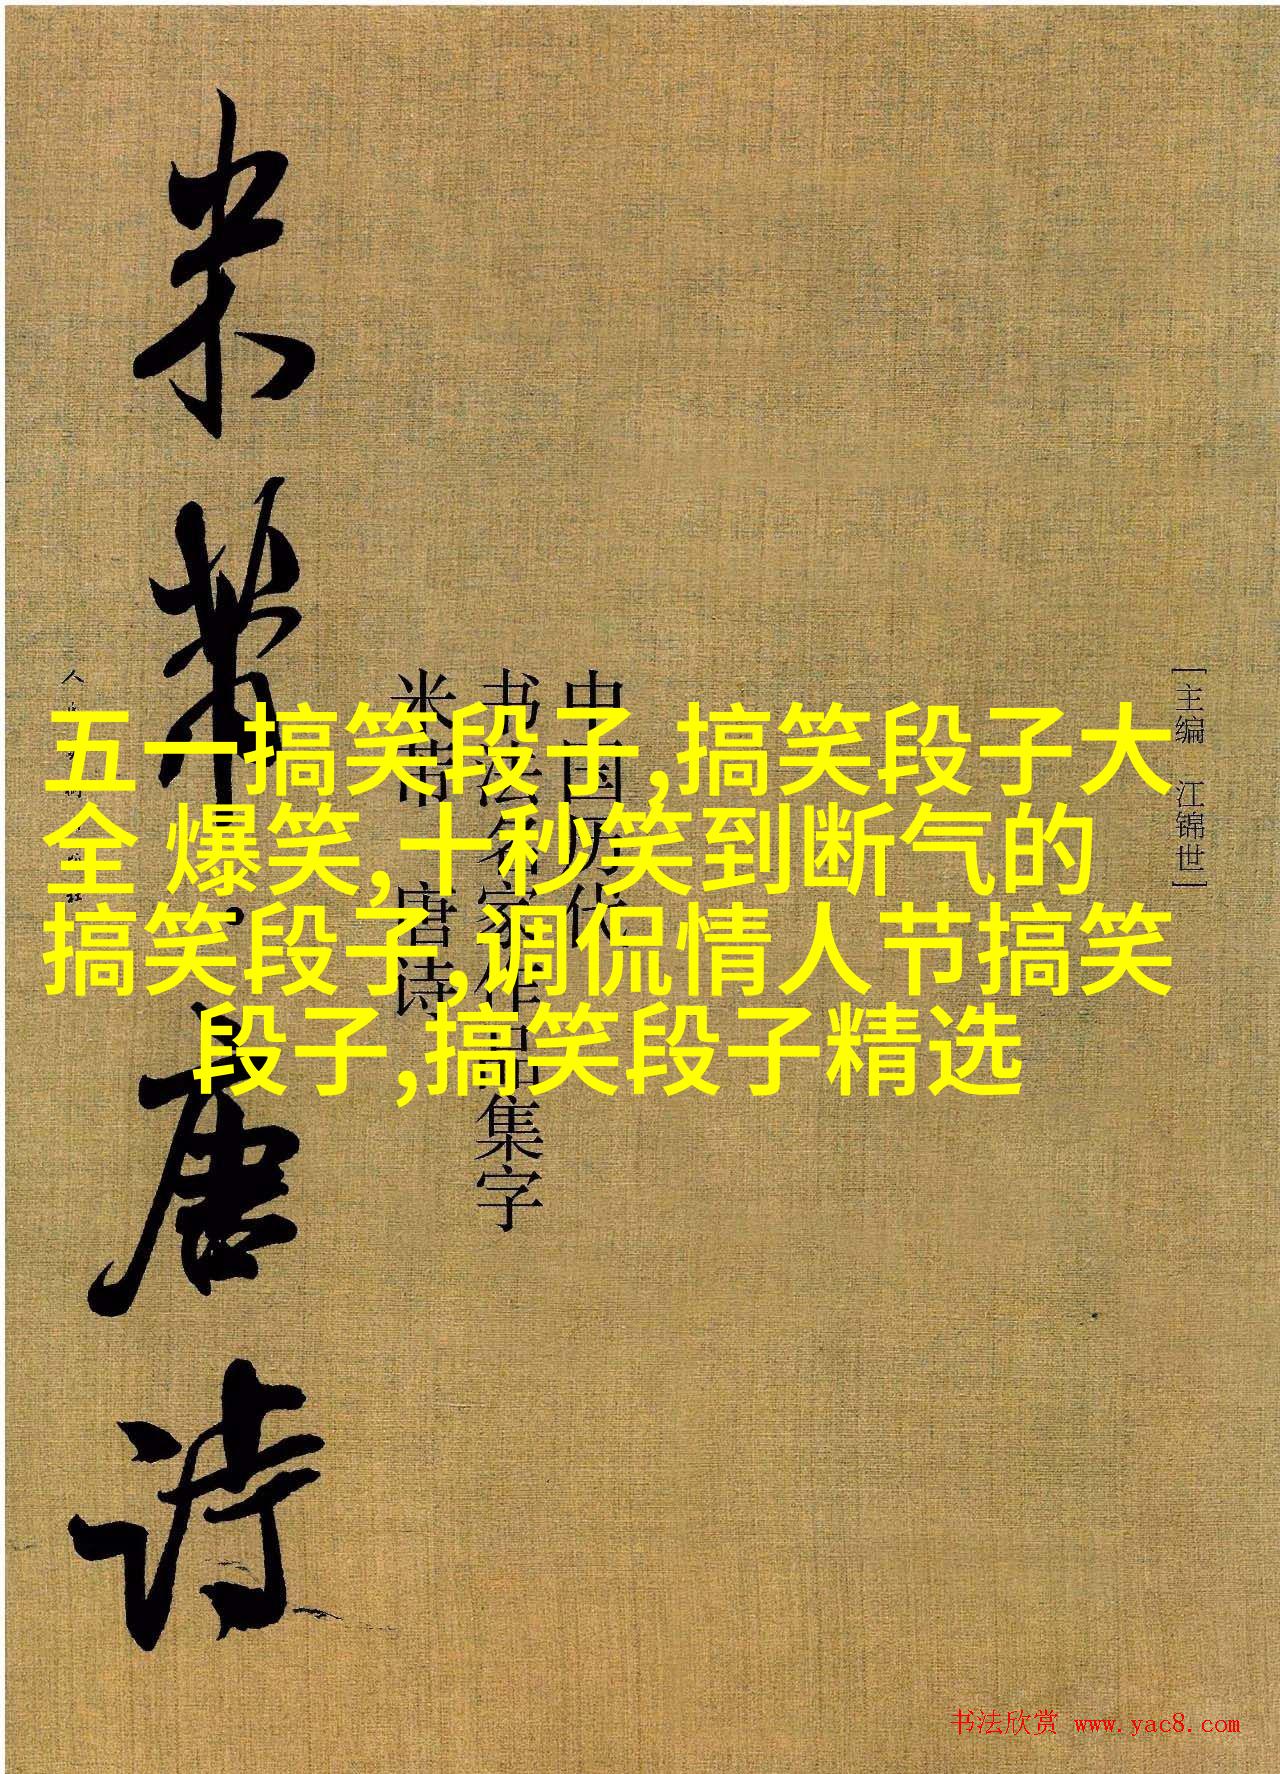 五一搞笑段子,搞笑段子大
全 爆笑,十秒笑到断气的
搞笑段子,调侃情人节搞笑
段子,搞笑段子精选
[主编 江锦世]
中国历代
书法名家作品集字
米芾 唐诗
米芾 唐诗
书法欣赏 www.yac8.com